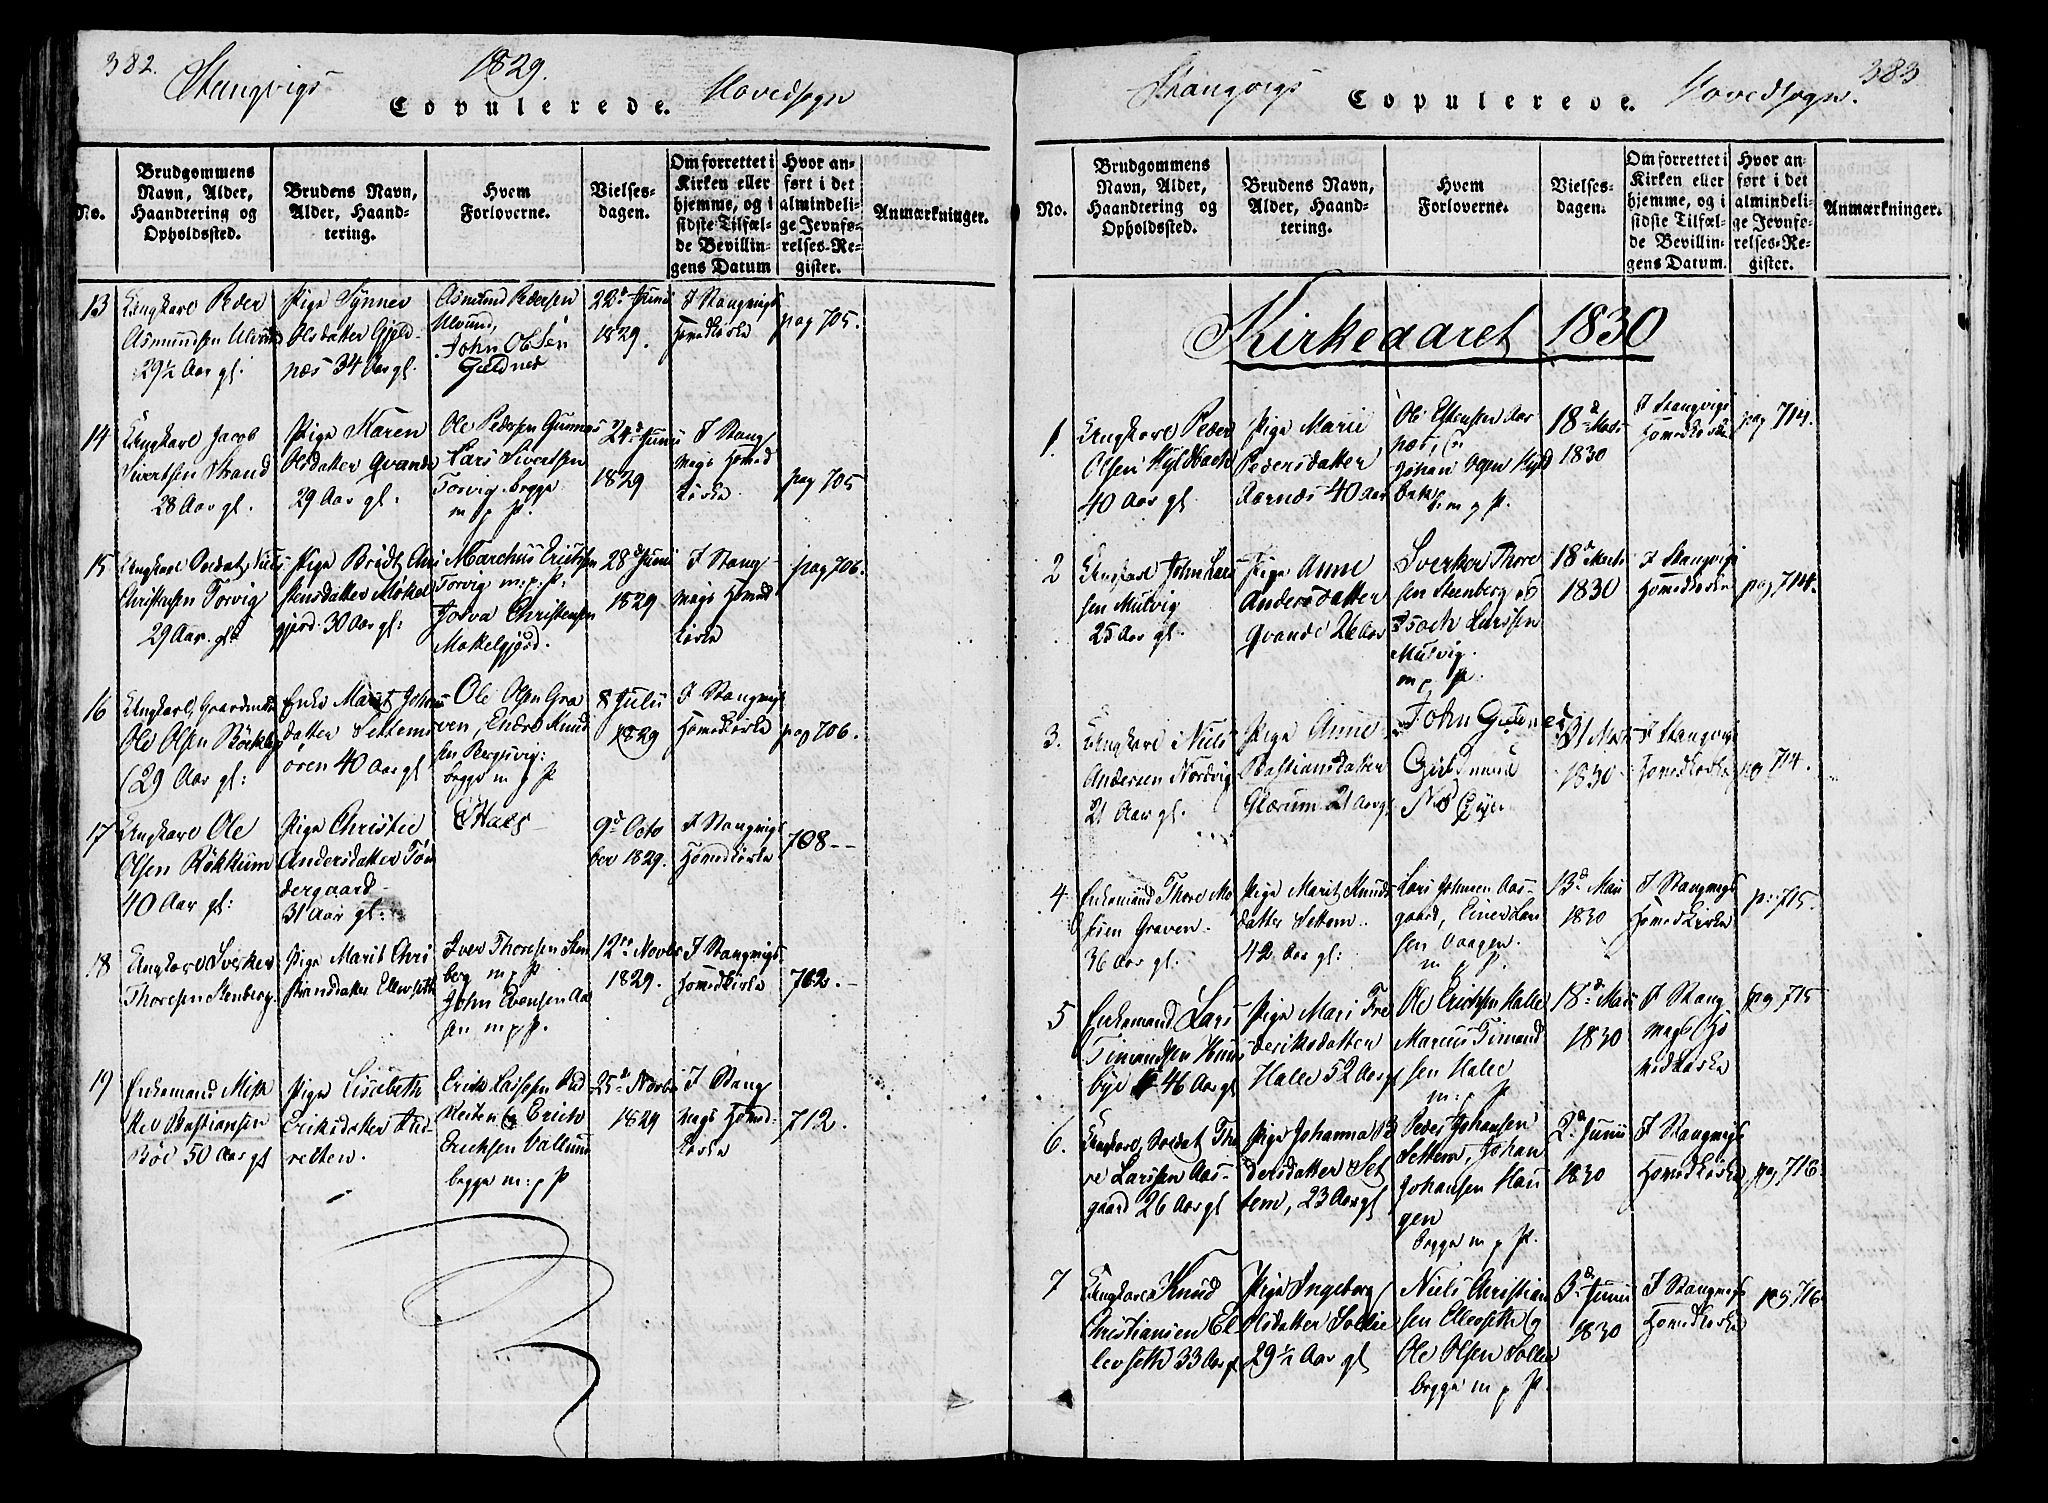 382.
Stangvigs
1829.
Copulerede.
Hovedsogn
No.
Brudgommens
Navn, Alder,
Haandtering og
Opholdssted.
Brudens Navn,
Alder, Haand-
tering.
Hvem
Forloverne.
Vielses-
dagen.
Om forrettet i
Kirken eller
hjemme, og i
sidste Tilfæl-
de Bevillin-
gens Datum
Hvor an-
ført i det
almindeli-
ge Jevnfø-
relses-Re-
gister.
Anmærkninger.
13
Ungkarl Peder
Asmundsen Ulvund
29½ Aar gl.
Pige Synnev
Olsdatter Gjeld-
næs 34 Aar gl.
Asmund Pedersen
Ulvund,
John Olsen
Gieldnes
22de Junii
1829.
I Stangvigs
Hovedkirke
pag 705.
14
Ungkarl Jacob
Sivertsen Strand
28 Aar gl.
Pige Maren
Olsdatter Qvande
29 Aar gl:
Ole Pedersen
Lars Sivertsen
Torvig. begge
m p P.
24de Junii
1829
I Stang
vigs Hoved
kirke
pag 705
15
Ungkarl Soldat
Christensen Torvig
29 Aar gl:
Pige Brit Chri
stensdatter Møkel
gjerd. 30 Aar gl:
Marchus Erichsen
Torvig m: p: P.
Christensen
Møkelgjerd.
28de Junii
1829
I Stang
vigs Hoved
kirke
pag 706.
16
Ungkarl, Gaardmand
Ole Olsen
29 Aar gl:
Enke Marit Johns
datter Settems
øren 40 Aar gl
Ole Olsen Gra
ven, Endre Knud
sen Bergsvig:
begge m p P
8 Julii
1829
I Stangvigs
Hovedkirke
pag 706.
17
Ungkarl Ole
Olsen Røkkum
40 Aar gl:
Pige Christie
Andersdatter Tøn
dergaard
31 Aar gl:
9de Octo
ber 1829.
I Stangvigs
Hovedkirke
708 --
18
Ungkarl Sverker
Thoresen Stenberg
Pige Marit Chri
stiansdatter Ellevseth
Iver Thoresen Sten
berg m p P
John Evensen Aa
sen m p P.
12te Novbr
1829.
I Stangvigs
Hovedkirke
712. -
19
Enkemand Mik
kel Bastiansen
Bøe 50 Aar gl
Pige Lisebeth
Eriksdatter Hal-
reiten.
Erick Larssen Hal
reiten og Erich
Ericksen Vullum
begge m: p P
25de Novbr
1829
I Stang
vigs Hoved-
kirke
712.
Stangvigs
Copulerede.
Hovedsogn.
383
No.
Brudgommens
Navn, Alder,
Haandtering og
Opholdssted.
Brudens Navn,
Alder, Haand-
tering.
Hvem
Forloverne.
Vielses-
dagen.
Om forrettet i
Kirken eller
hjemme, og i
sidste Tilfæl-
de Bevillin-
gens Datum.
Hvor an-
ført i det
almindeli-
ge Jevnfø-
relses-Re-
gister.
Anmærkninger.
Kirkeaaret 1830
1.
Ungkarl Peder
Olsen Hyldbach
40 Aar gl.
Pige Marie
Pedersdatter
Aarnæs 40 Aar
Ole Estensen Aar
næs, og
Johan Hyld
bak
m p P.
18de Marts
1830
I Stangvigs
Hovedkirke
pag 714.
2
Ungkarl John Lars
sen Mulvig
25 Aar gl.
Pige Anne
Andersdatter
Qvande 26 Aar
Sverker Thore
sen Steenberg og
Isach Larssen
Mulvig.
m p P.
18de Marts
1830
I Stangvigs
Hovedkirke
pag 714.
3.
Ungkarl Niels
Andersen Nordvig
21 Aar gl.
Pige Anne
Bastiansdatter
Glærum 21 Aar gl
John
31 Marts
1830
I Stangvigs
Hovedkirke
pag 714.
4
Enkemand Thore
Graven.
36 Aar gl.
Pige Marit Knuds
datter Settem.
42 Aar gl:
Lars Johnsen Aas-
gaard, Einer Lars
sen Vaagen.
m p P.
13de Maii
1830
I Stangvigs
Hovedkirke
p: 715.
5
Enkemand Lars
Timandsen Huus
bye 46 Aar gl
Pige Mari Fre
deriksdatter
Halle 52 Aar gl
Ole Erichsen Halle
Marcus Timand
sen Halle
m: p P
18de Maii
1830
I Stang
vigs Ho
vedkirke
pag 715
6.
Ungkarl, Soldat Tho
re Larssen Aas-
gaard 26 Aar gl
Pige Johanna Pe
dersdatter Set
tem, 23 Aar gl
Peder Johansen
Settem, Johan
Johansen Hau
gen
begge m p P.
2de Junii
1830
I Stangvigs
Hovedkirke
pag 716.
7
Ungkarl Knud
Christiansen El
levseth 33 Aar gl
Pige Ingeborg
Olsdatter Sollie
29½ Aar gl
Niels Christian
sen Ellevseth og
Ole Olsen Sollie
begge m p P.
3de Junii
1830
I Stangvigs
Hovedkirke
pag 716.